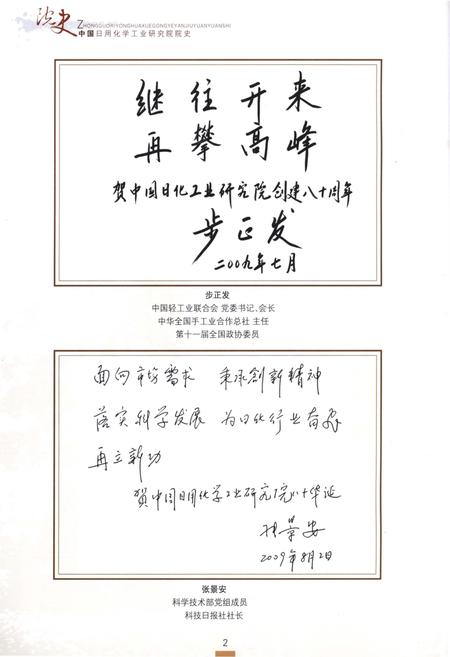 院史
ZHONGGUORIYONGHUAXUEGONGYEYANJIUYUANYUANSHI
中国日用化学工业研究院院史
继往开来
再攀高峰
贺中国日化工业研究院创建八十周年
步正发
二〇〇九年七月
步正发
中国轻工业联合会 党委书记、会长
中华全国手工业合作总社 主任
第十一届全国政协委员
面向市场需求 秉承创新精神
落实科学发展 为日化行业奋发
再立新功
贺中国日用化学工业研究院八十华诞
张景安
2009年8月2日
张景安
科学技术部党组成员
科技日报社社长
2